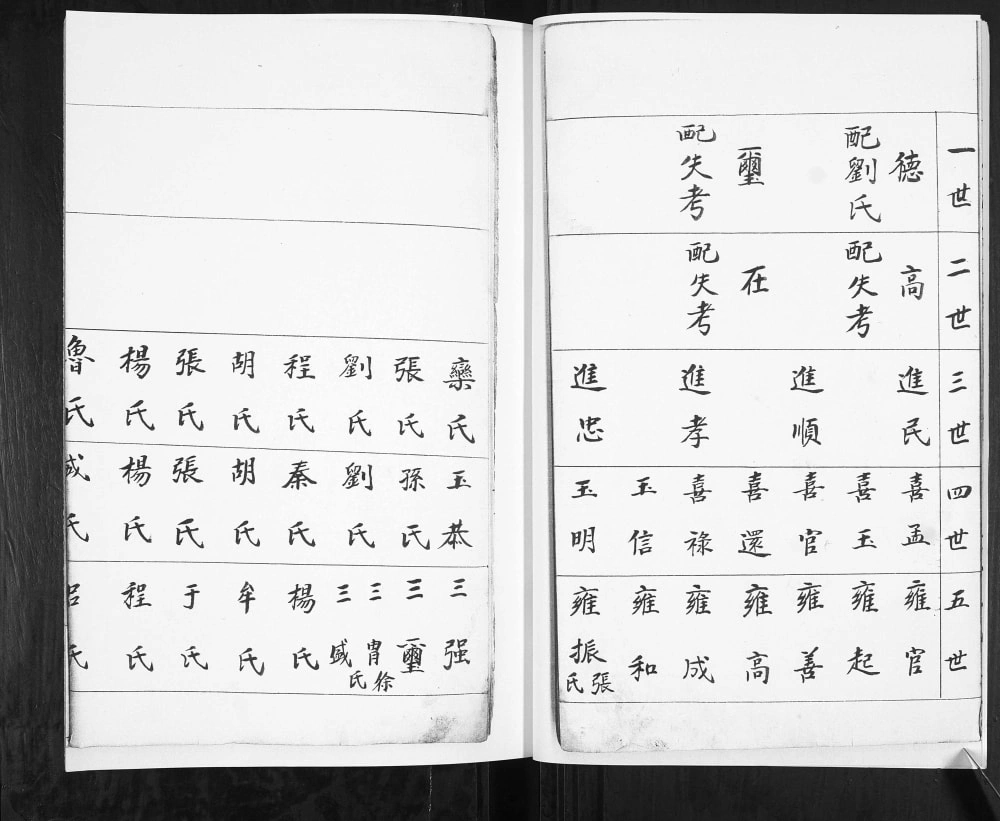 一世
德
配劉氏
璽
配失考
二世
高
配失考
在
配失考
三世
進民
進順
進孝
進忠
四世
喜孟
喜玉
喜官
喜還
喜祿
玉信
玉明
五世
雍官
雍起
雍善
雍高
雍成
雍和
雍振
張氏
欒氏
張氏
劉氏
程氏
胡氏
張氏
楊氏
魯氏
玉恭
孫氏
劉氏
秦氏
胡氏
張氏
楊氏
戚氏
三强
三璽
三胄
徐氏
三盛
楊氏
牟氏
于氏
程氏
呂氏